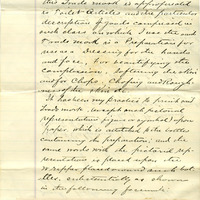 this Trade mark is appropriated
is Toilet Articles and the particular
description of goods comprised in
such class on which I use the said
Trade mark is a Preparation for
use as a Dressing for the Hands
and face, for beautifying the
complexion, Softening the skin
and for Chaps, Chafing and Rough-
ness of the skin etc
It has been my practice to print said
Trade mark,
representation sign or symbol upon
paper which is attached to the bottles
containing the preparation; and the
same words with the pictorial rep-
resentation is placed upon the
wrapper placed around each bot-
tle, substantially as shown
in the following facsimile.